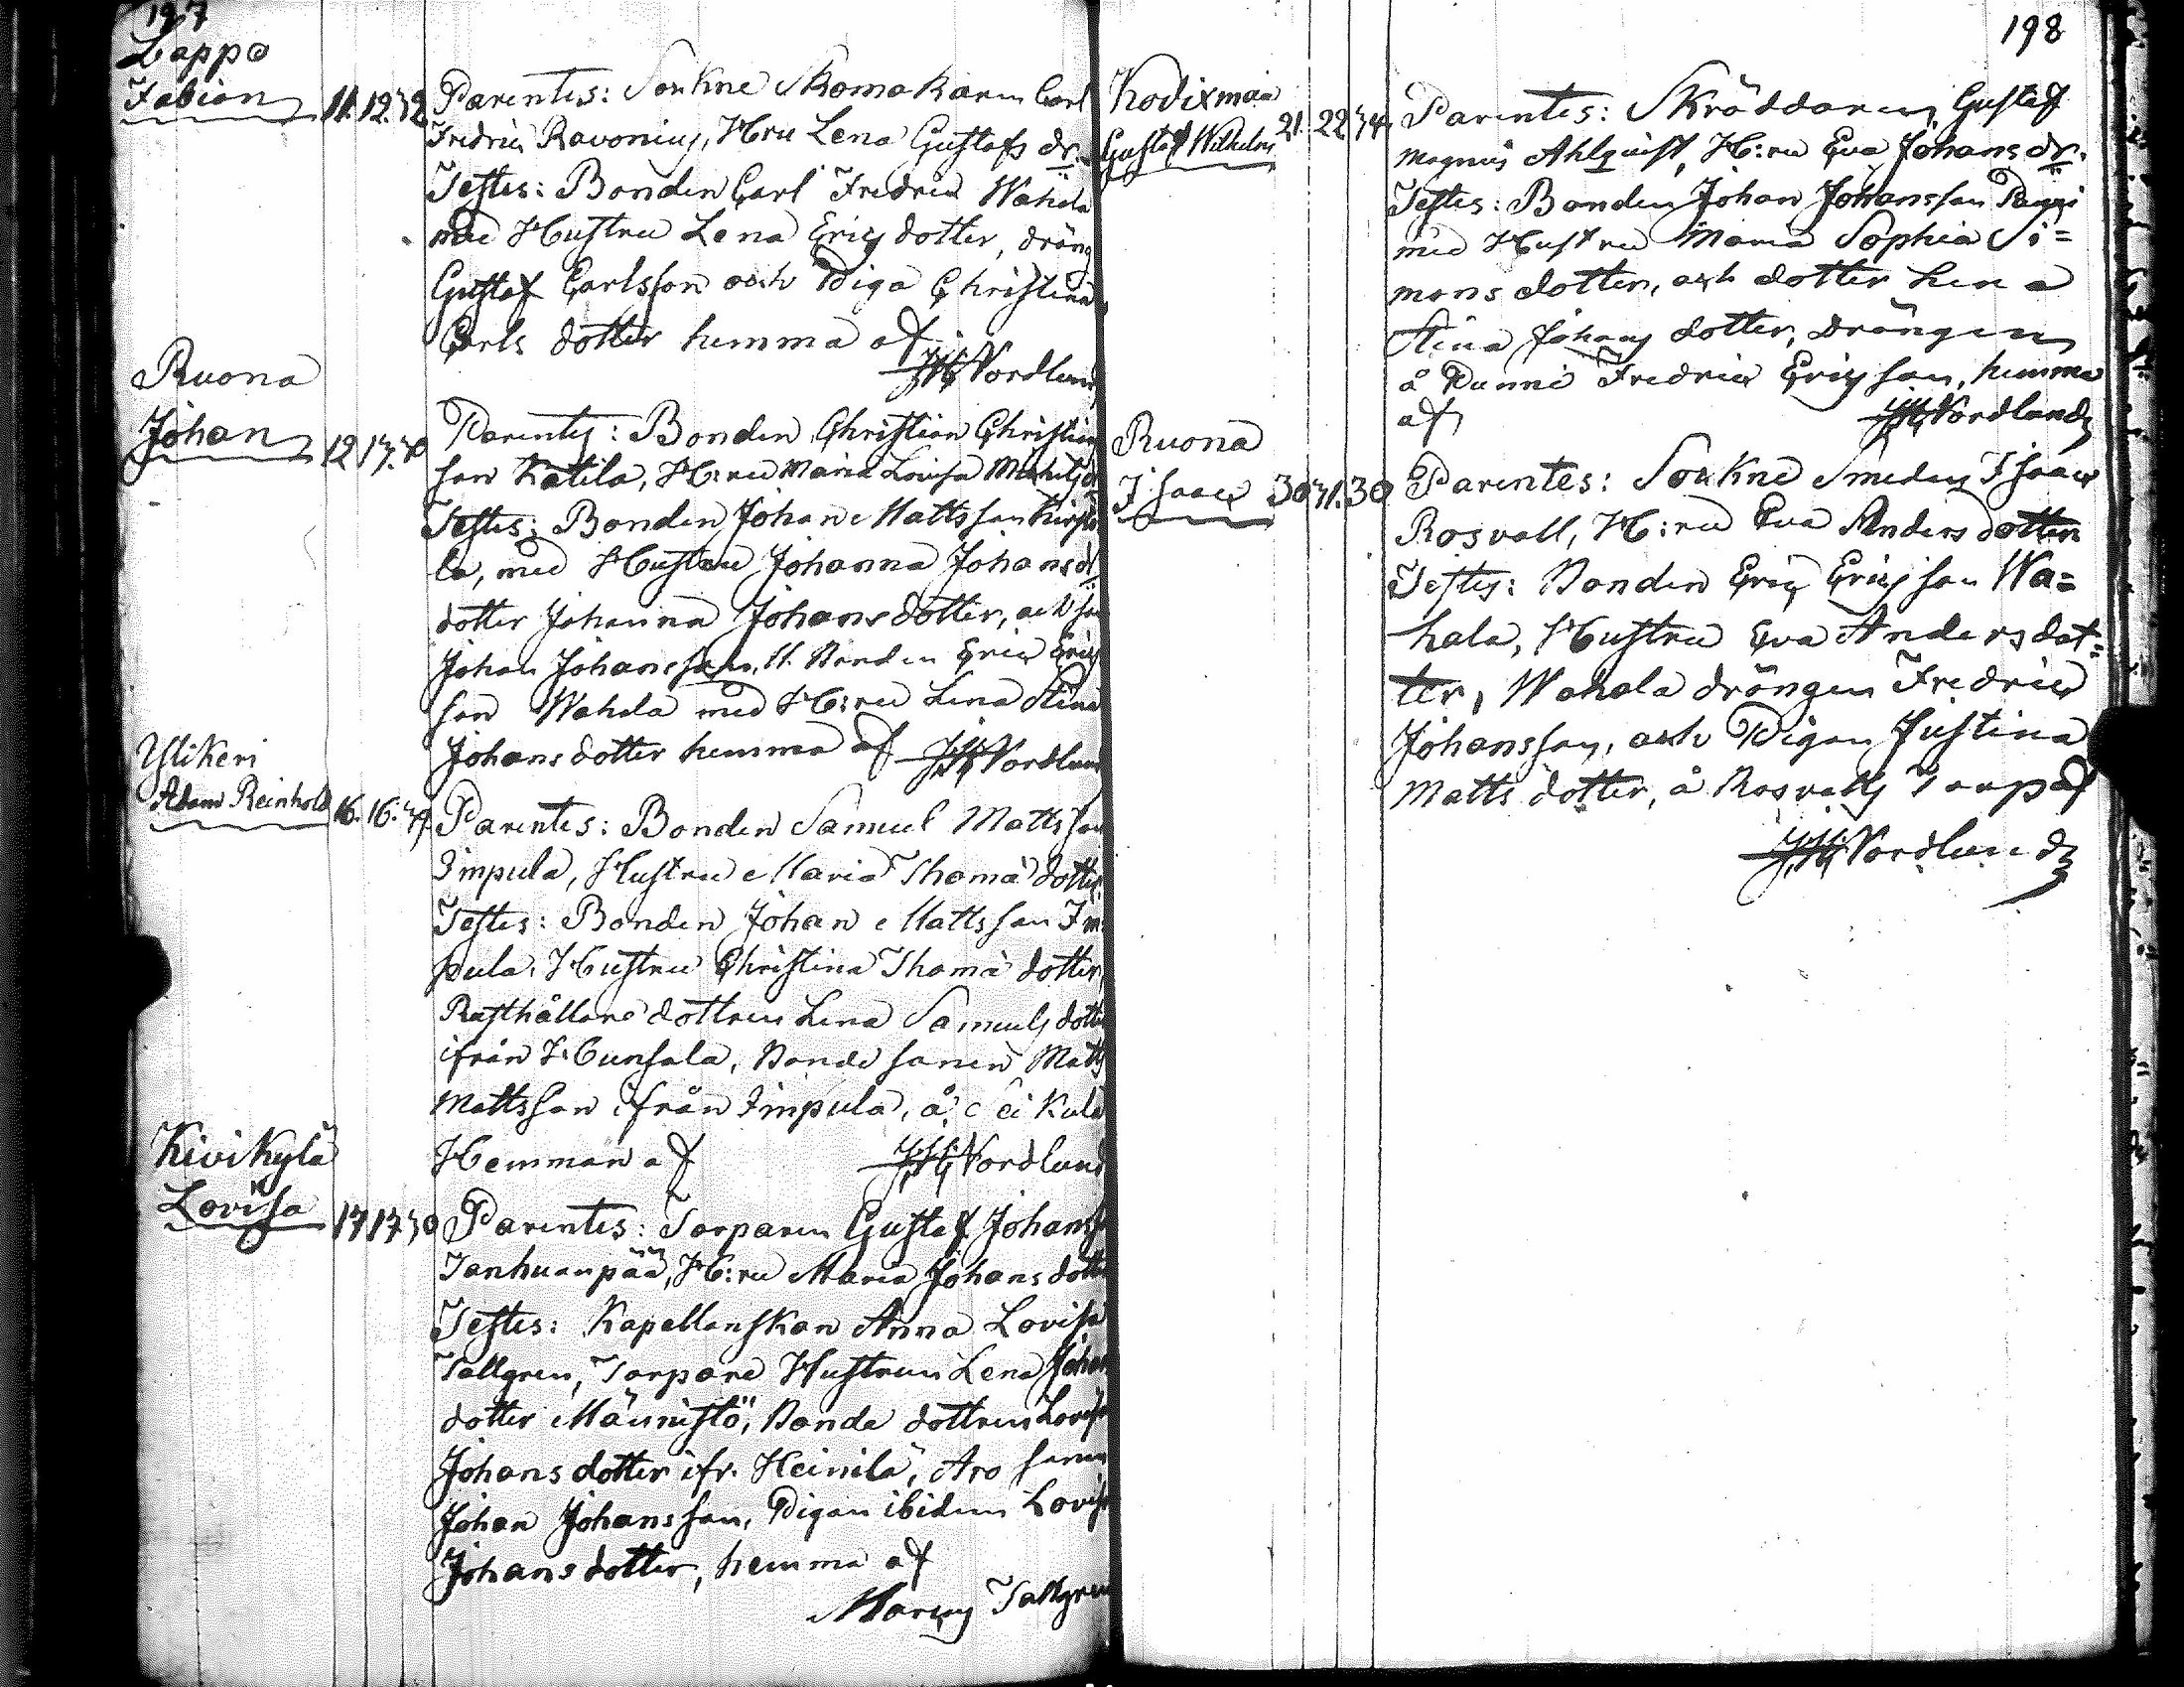 197
Lappo
Fabian 11. 12. 32
Parentes: Sockne Skomakaren Carl
Fredric Ravonius, H:ru Lena Gustafs dr.
Testes: Bonden Carl Fredric Wahala
med Hustru Lena Erics dotter, dräng
Gustaf Carlsson och Piga Christina
Carls dotter hemma af
Nordlund
Ruona
Johan 12 13.
Parentes: Bonden Christian Christian
son Katila, H:ru Maria Lovisa Michels d
Testes: Bonden Johan Mattsson
la, med Hustru Johanna Johans d:
dotter Johanna Johans dotter, och son
Johan Johansson, Bonden Eric Eric
son Wahala med H:ru Lena Stina
Johans dotter hemma af Nordlund
Ylikeri
Adam Reinhold 16. 16.
Parentes: Bonden Samuel Mattsson
Impula, Hustru Maria Thomæ dotter
Testes: Bonden Johan Mattsson Im
pula, Hustru Christina Thomæ dotter,
Rusthållare dottren Lena Samuels dotter
ifrån Hunsala, Bonde sonen Matts
Mattsson ifrån Impula, å
Hemman af Nordlund
Kivikylä
Lovisa 17 17 30
Parentes: Torparen Gustaf Johans
Tanhuanpää, H:ru Maria Johans dotter
Testes: Kapellanskan Anna Lovisa
Tallgren, Torpare Hustrun Lena Johans
dotter Männistö, Bonde dottren Lovisa
Johans dotter ifr. Heinilä, Aro sonen
Johan Johansson, Pigan ibidem Lovisa
Johans dotter, hemma af
Marcus Tallgren
198
Kodixmaa
Gustaf Wilhelm 21. 22 34
Parentes: Skräddaren Gustaf
Magnus Ahlquist, H:ru Eva Johans dr.
Testes: Bonden Johan Johansson
med Hustru Maria Sophia Si=
mons dotter, och dotter Lena
Stina Johans dotter, Drängen
å Fredric Ericsson, hemma
af Nordlund
Ruona
Isaac 30 31. 30
Parentes: Sockne Smeden Isaac
Rosvall, H:ru Eva Anders dotter
Testes: Bonden Eric Ericsson Wa=
hala, Hustru Eva Anders dot=
ter, Wahala drängen Fredric
Johansson, och Pigan Justina
Matts dotter, å Rosvalls Torp af
Nordlund